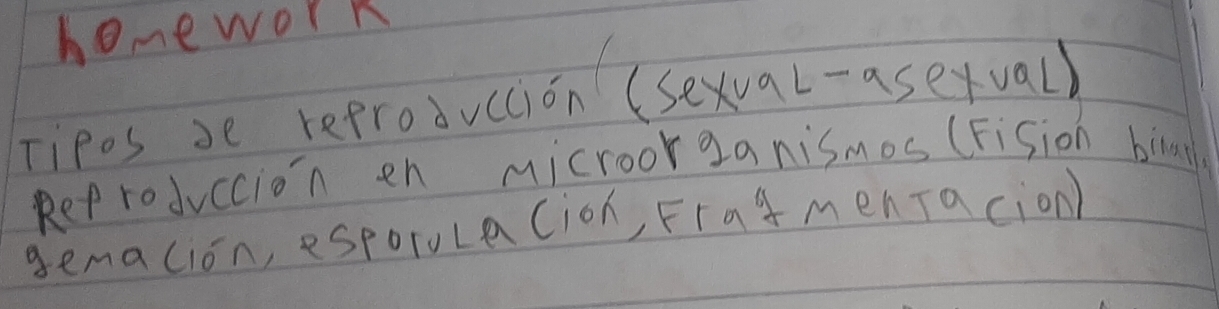 homework
Tipos de reproducción (sexual-asexual)
Reproducción en microorganismos (Fision binaria,
gemación, esporulación, Fragmentacion)